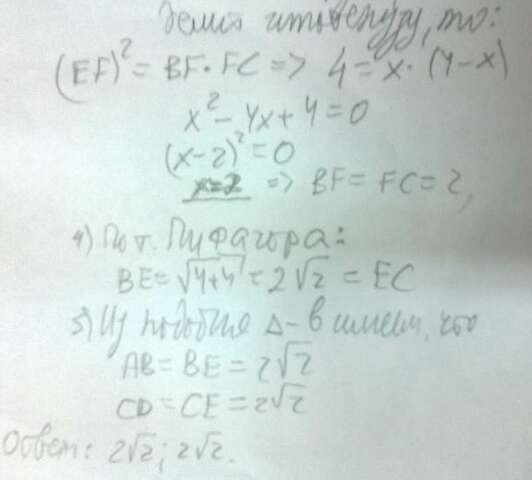 делит гипотенузу, то:
(EF)² = BF·FC => 4 = x·(4-x)
x² - 4x + 4 = 0
(x-2)² = 0
x=2 => BF = FC = 2,
4) По т. Пифагора:
BE = √4+4 = 2√2 = EC
5) Из подобия Δ-в имеем, что
AB = BE = 2√2
CD = CE = 2√2
Ответ: 2√2; 2√2.